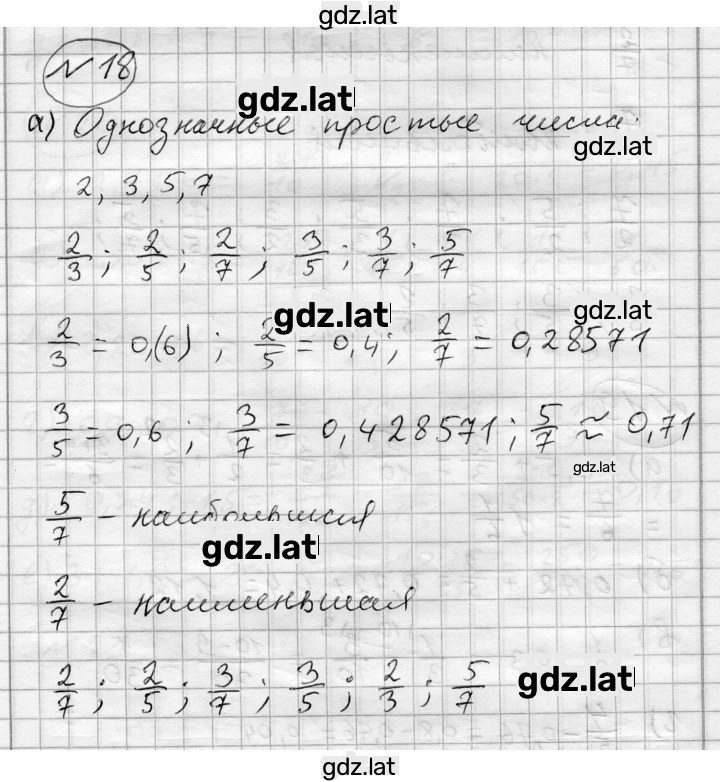 gdz.lat
№ 18
gdz.lat
а) Однозначные простые числа:
gdz.lat
2, 3, 5, 7
2/3 ; 2/5 ; 2/7 ; 3/5 ; 3/7 ; 5/7
gdz.lat gdz.lat
2/3 = 0,(6) ; 2/5 = 0,4 ; 2/7 = 0,28571
3/5 = 0,6 ; 3/7 = 0,428571 ; 5/7 ≈ 0,71
gdz.lat
5/7 – наибольшая
gdz.lat
2/7 – наименьшая
2/7 ; 2/5 ; 3/7 ; 3/5 ; 2/3 ; 5/7 gdz.lat
gdz.lat